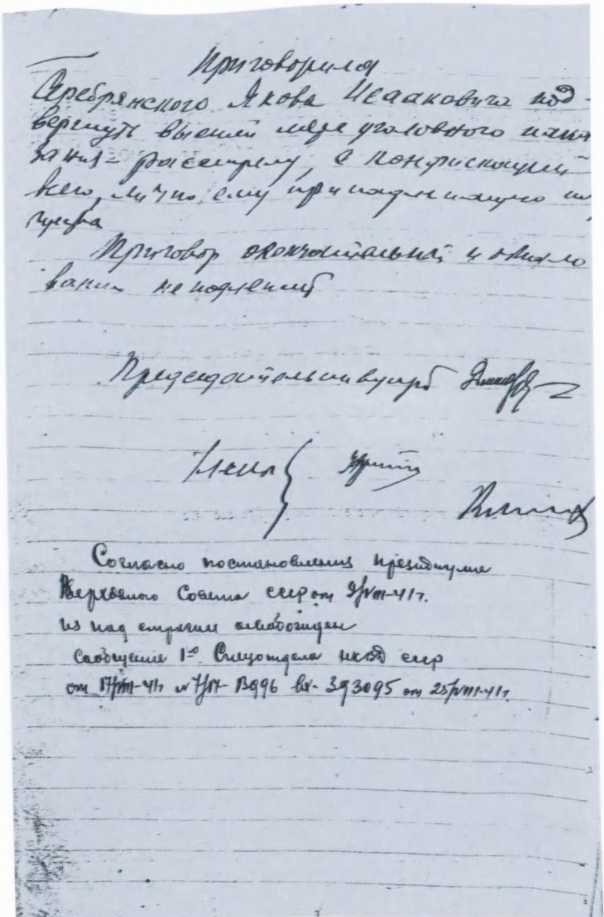 Приговорила
Серебрянского Якова Исааковича под-
вергнуть высшей мере уголовного нака
зания – расстрелу, с конфискацией
всего, лично ему принадлежащего иму
щества
Приговор окончательный и обжало
ванию не подлежит
Председательствующий
Члены
Согласно постановления президиума
Верховного Совета СССР от 9/VIII-41г.
из под стражи освобожден
Сообщение 1го Спецотдела НКВД СССР
от 17/VIII-41г № 7/17- 13996 вх- 393095 от 25/VIII-41г.